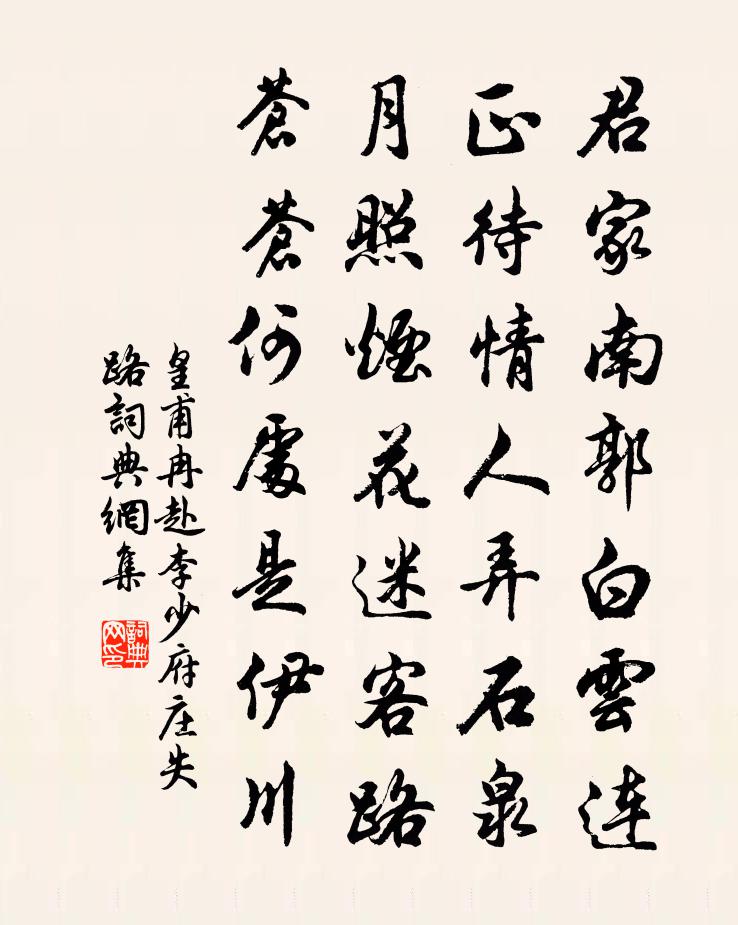 君家南郭白雲連
正待情人弄石泉
月照煙花迷客路
蒼蒼何處是伊川
皇甫冉赴李少府庄失
路詞典網集
詞典网印